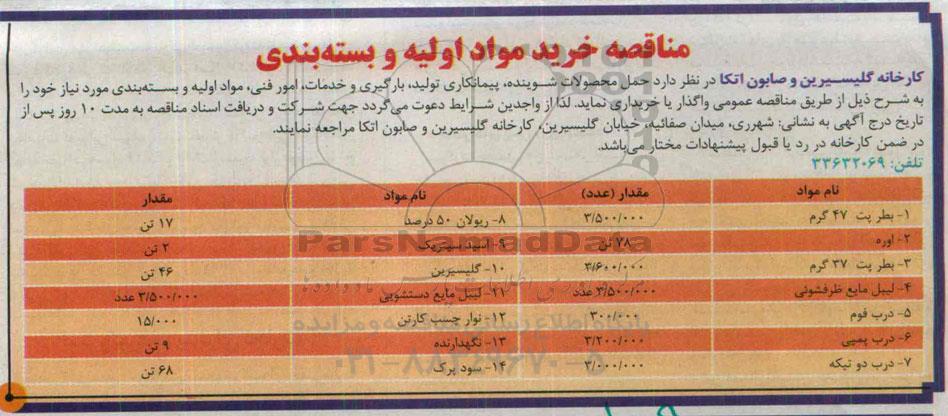 مناقصه خرید مواد اولیه و بسته‌بندی
کارخانه گلیسیرین و صابون اتکا در نظر دارد حمل محصولات شوینده، پیمانکاری تولید، بارگیری و خدمات، امور فنی، مواد اولیه و بسته‌بندی مورد نیاز خود را
به شرح ذیل از طریق مناقصه عمومی واگذار یا خریداری نماید. لذا از واجدین شرایط دعوت می‌گردد جهت شرکت و دریافت اسناد مناقصه به مدت ۱۰ روز پس از
تاریخ درج آگهی به نشانی: شهرری، میدان صفائیه، خیابان گلیسیرین، کارخانه گلیسیرین و صابون اتکا مراجعه نمایند.
در ضمن کارخانه در رد یا قبول پیشنهادات مختار می‌باشد.
تلفن: ۳۳۶۳۲۰۶۹
نام مواد مقدار (عدد) نام مواد مقدار
۱- بطر پت ۴۷ گرم ۳/۵۰۰/۰۰۰ ۸- ریولان ۵۰ درصد ۱۷ تن
۲- اوره ۷۸ تن ۹- اسید سیتریک ۲ تن
۳- بطر پت ۳۷ گرم ۳/۶۰۰/۰۰۰ ۱۰- گلیسیرین ۴۶ تن
۴- لیبل مایع ظرفشوئی ۳/۵۰۰/۰۰۰ عدد ۱۱- لیبل مایع دستشویی ۳/۵۰۰/۰۰۰ عدد
۵- درب فوم ۳۰۰/۰۰۰ ۱۲- نوار چسب کارتن ۱۵/۰۰۰
۶- درب پمپی ۳/۲۰۰/۰۰۰ ۱۳- نگهدارنده ۹ تن
۷- درب دو تیکه ۳/۰۰۰/۰۰۰ ۱۴- سود پرک ۶۸ تن
ParsNamadData
پایگاه اطلاع رسانی مناقصه و مزایده
۰۲۱-۸۸۳۴۹۶۷۰-۵